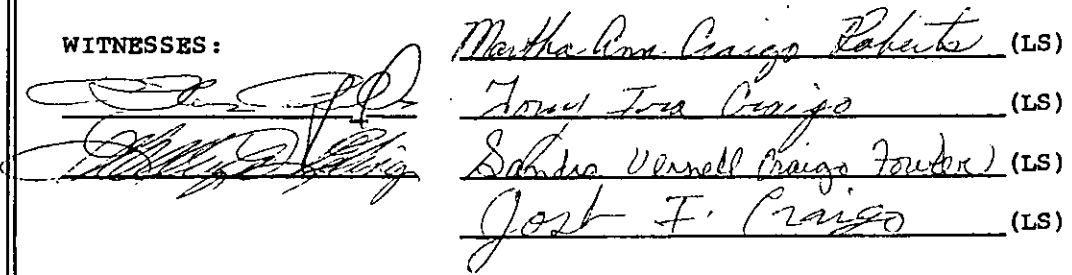 WITNESSES:
Martha Ann Craigo Roberts (LS)
Tony Ira Craigo (LS)
Sandra Vernell Craigo Fowler (LS)
Josh F. Craigo (LS)